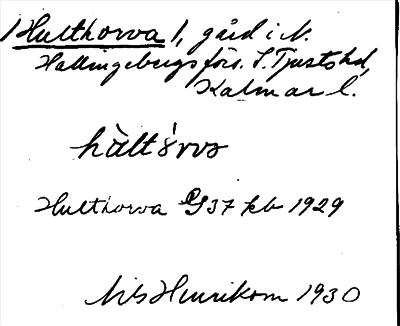 Hulthorva 1, gård i N.
Hallingebergs förs. S. Tjusts hd,
Kalmar l.
hàltórva
Hulthorva GS37 kb 1929
Nils Henrikson 1930